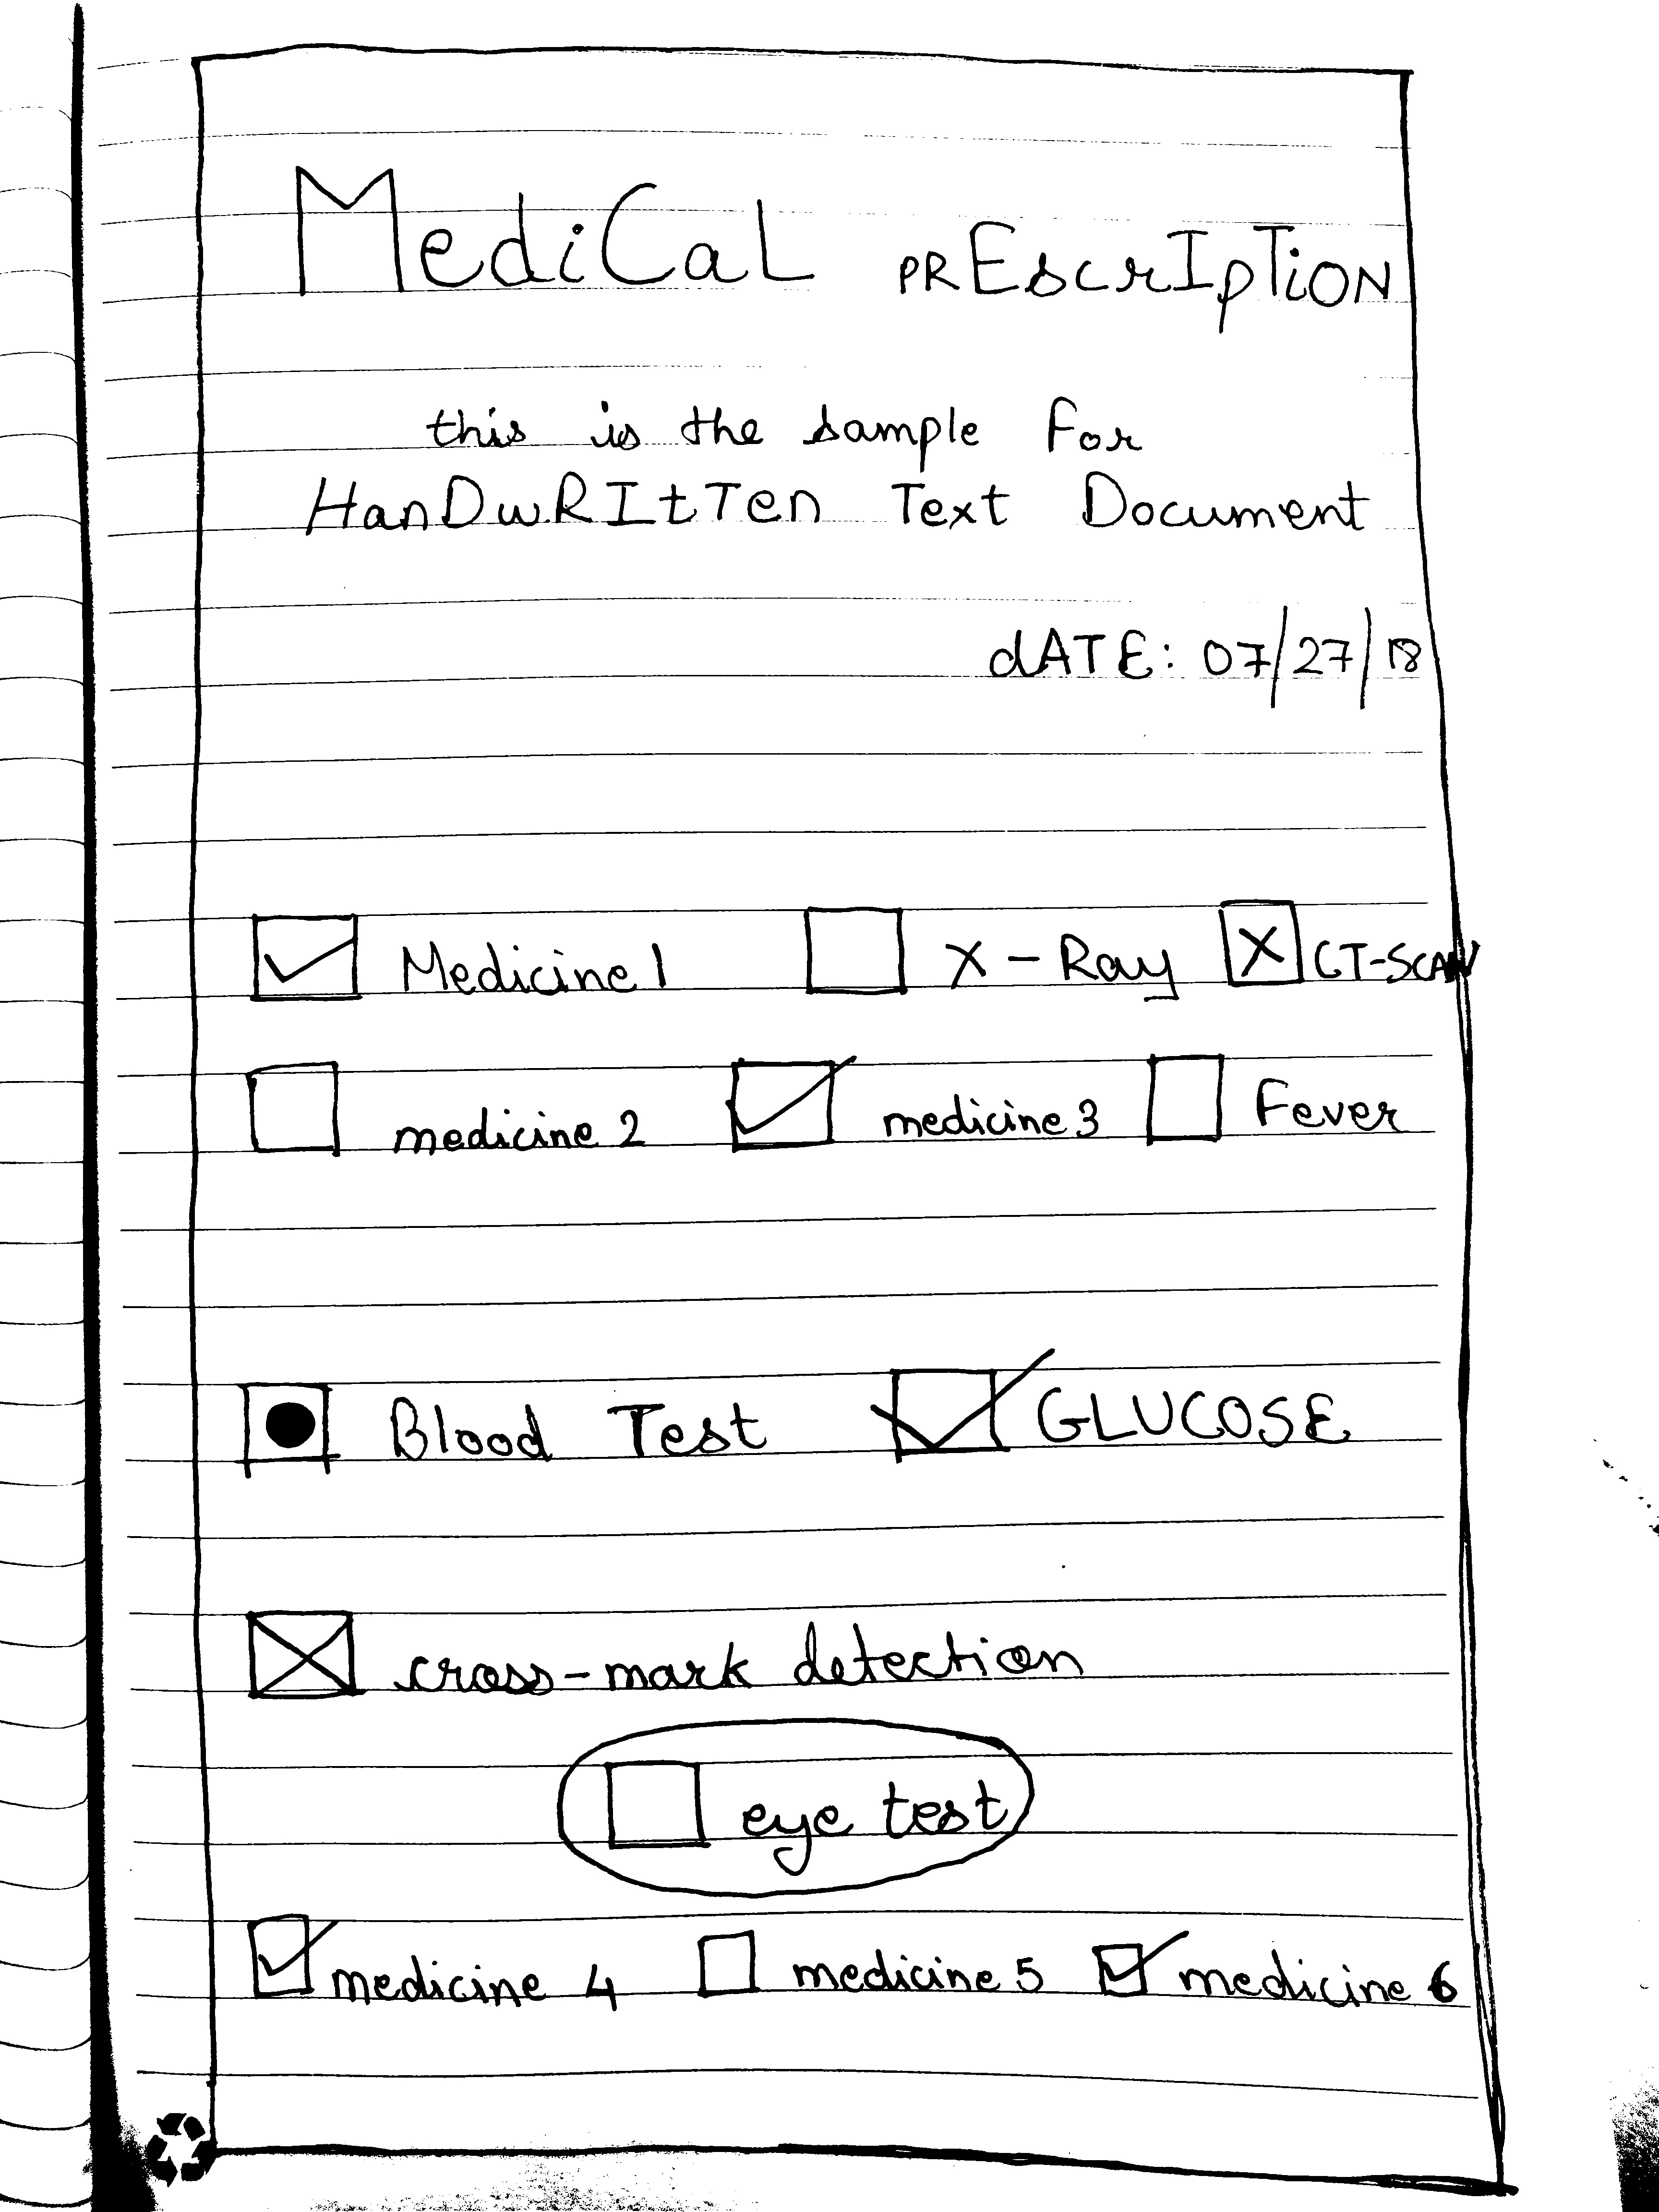 MediCaL PREscrIpTiON
this is the sample For
HanDwRItTen Text Document
dATE: 07/27/18
☑ Medicine 1 ☐ X-Ray ☒ CT-SCAN
☐ medicine 2 ☑ medicine 3 ☐ Fever
Blood Test ☑ GLUCOSE
☒ cross-mark detection
☐ eye test
☑ medicine 4 ☐ medicine 5 ☑ medicine 6